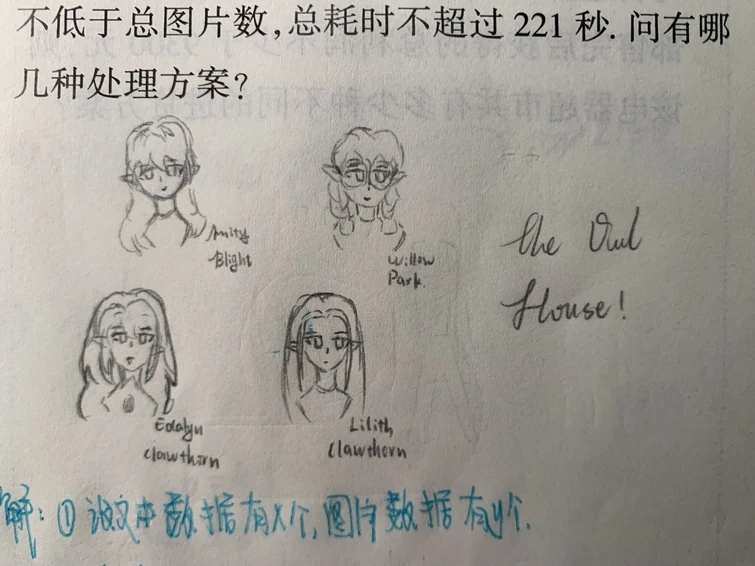 不低于总图片数,总耗时不超过 221 秒. 问有哪
几种处理方案?
Amity
Blight
Willow
Park.
The Owl
House!
Edalyn
Clawthorn
Lilith
Clawthorn
解: ① 设文本数据有x个, 图片数据有y个.